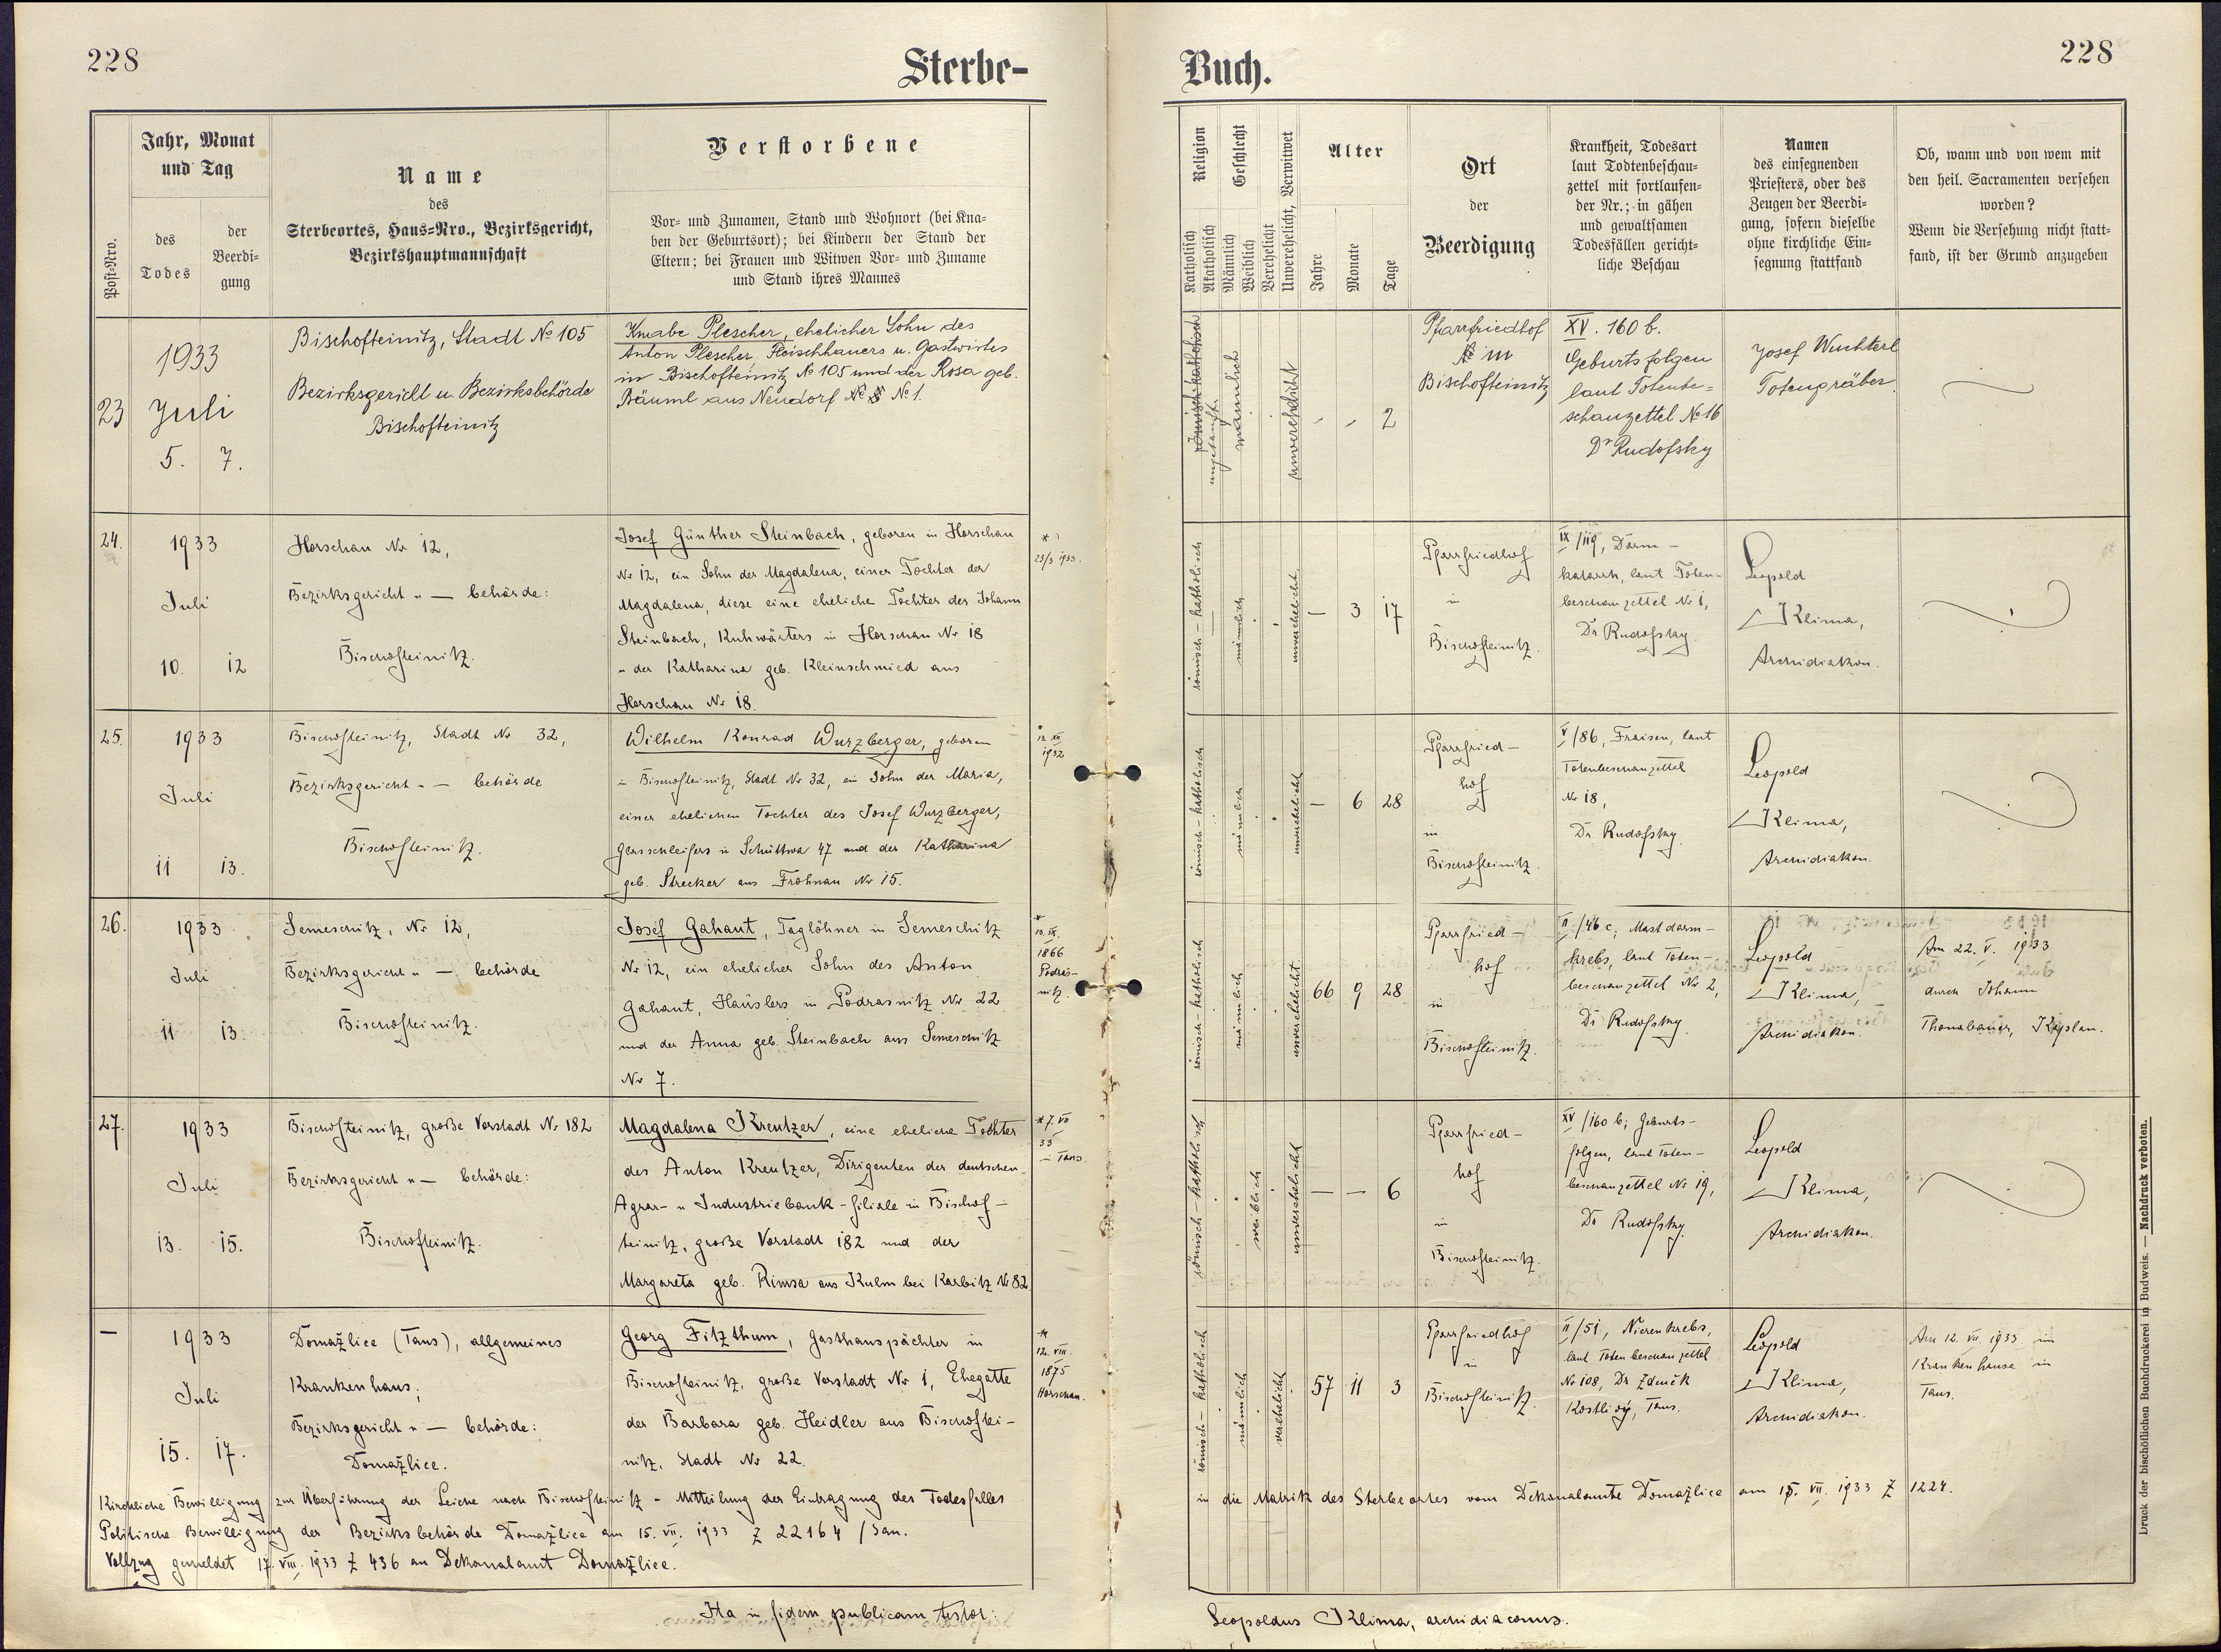 228
Sterbe-
Buch.
228
Post-Nro.
Jahr, Monat
und Tag
des
Todes
der
Beerdi-
gung
Name
des
Sterbeortes, Haus-Nro., Bezirksgericht,
Bezirkshauptmannschaft
Verstorbene
Vor- und Zunamen, Stand und Wohnort (bei Kna-
ben der Geburtsort); bei Kindern der Stand der
Eltern; bei Frauen und Witwen Vor- und Zuname
und Stand ihres Mannes
Religion
Katholisch
Akatholisch
Geschlecht
Männlich
Weiblich
Verehelicht
Unverehelicht, Verwitwet
Alter
Jahre
Monate
Tage
Ort
der
Beerdigung
Krankheit, Todesart
laut Todtenbeschau-
zettel mit fortlaufen-
der Nr.; in gähen
und gewaltsamen
Todesfällen gericht-
liche Beschau
Namen
des einsegnenden
Priesters, oder des
Zeugen der Beerdi-
gung, sofern dieselbe
ohne kirchliche Ein-
segnung stattfand
Ob, wann und von wem mit
den heil. Sacramenten versehen
worden?
Wenn die Versehung nicht statt-
fand, ist der Grund anzugeben
23
1933
Juli
5. 7.
Bischofteinitz, Stadt № 105
Bezirksgericht u. Bezirksbehörde
Bischofteinitz
Knabe Plescher, ehelicher Sohn des
Anton Plescher Fleischhauers u. Gastwirtes
in Bischofteinitz № 105 und der Rosa geb.
Bäuml aus Neudorf № 1.
römisch-katholisch
ungetauft
männlich
unverehelicht
- - 2
Pfarrfriedhof
in
Bischofteinitz
XV. 160 b.
Geburtsfolgen
laut Totenbe-
schauzettel № 16
Dr Rudofsky
Josef Wuchterl
Totengräber.
24.
1933
Juli
10. 12
Horschau Nr 12,
Bezirksgericht u — behörde:
Bischofteinitz.
Josef Günther Steinbach, geboren in Horschau
Nr 12, ein Sohn der Magdalena, einer Tochter der
Magdalena, diese eine eheliche Tochter des Johann
Steinbach, Kuhwärters in Horschau Nr 18
u der Katharina geb. Kleinschmied aus
Horschau Nr 18.
*
23/3 1933.
römisch-katholisch
männlich
unverehelicht
— 3 17
Pfarrfriedhof
in
Bischofteinitz.
IX/119, Darm-
katarrh, laut Toten-
beschauzettel Nr 1,
Dr Rudofsky.
Leopold
Klima,
Archidiakon.
25.
1933
Juli
11 13.
Bischofteinitz, Stadt Nr 32,
Bezirksgericht u — behörde
Bischofteinitz.
Wilhelm Konrad Wurzberger, geboren
in Bischofteinitz, Stadt Nr 32, ein Sohn der Maria,
einer ehelichen Tochter des Josef Wurzberger,
Glasschleifers in Schüttwa 47 und der Katharina
geb. Strecker aus Frohnau Nr 15.
*
12. XII
1932
römisch-katholisch
männlich
unverehelicht
— 6 28
Pfarrfried-
hof
in
Bischofteinitz.
V/86, Fraisen, laut
Totenbeschauzettel
Nr 18,
Dr Rudofsky.
Leopold
Klima,
Archidiakon.
26.
1933
Juli
11 13.
Semeschitz, Nr 12,
Bezirksgericht u — behörde
Bischofteinitz.
Josef Gahaut, Taglöhner in Semeschitz
Nr 12, ein ehelicher Sohn des Anton
Gahaut, Häuslers in Podrasnitz Nr 22
und der Anna geb. Steinbach aus Semeschitz
Nr 7.
*
13. IX.
1866
Podras-
nitz.
römisch-katholisch
männlich
unverehelicht.
66 9 28
Pfarrfried-
hof
in
Bischofteinitz.
II/46 c, Mastdarm-
krebs, laut Toten-
beschauzettel Nr 2,
Dr Rudofsky.
Leopold
Klima,
Archidiakon.
Am 22. V. 1933
durch Johann
Thonabauer, Kaplan.
27.
1933
Juli
13. 15.
Bischofteinitz, große Vorstadt Nr 182
Bezirksgericht u — behörde:
Bischofteinitz.
Magdalena Kreutzer, eine eheliche Tochter
des Anton Kreutzer, Dirigenten der deutschen
Agrar- u Industriebank-filiale in Bischof-
teinitz, große Vorstadt 182 und der
Margareta geb. Rimsa aus Kulm bei Karbitz Nr 82.
* 7. VII
33
in Taus.
römisch-katholisch
weiblich
unverehelicht
— — 6
Pfarrfried-
hof
in
Bischofteinitz.
XV/160 b; Geburts-
folgen, laut Toten-
beschauzettel Nr 19,
Dr Rudofsky.
Leopold
Klima,
Archidiakon.
—
1933
Juli
15. 17.
Domažlice (Taus), allgemeines
Krankenhaus;
Bezirksgericht u — behörde:
Domažlice.
Georg Fitzthum, Gasthauspächter in
Bischofteinitz, große Vorstadt Nr 1, Ehegatte
der Barbara geb. Heidler aus Bischoftei-
nitz, Stadt Nr 22.
*
12. VIII.
1875
Horschau.
römisch-katholisch
männlich
verehelicht
57 11 3
Pfarrfriedhof
in
Bischofteinitz.
II/51, Nierenkrebs,
laut Totenbeschauzettel
Nr 108, Dr Zdeněk
Kostlivý, Taus.
Leopold
Klima,
Archidiakon.
Am 12. VII. 1933 im
Krankenhause in
Taus.
Kirchliche Bewilligung zur Überführung der Leiche nach Bischofteinitz - Mitteilung der Eintragung des Todesfalles
in die Matrik des Sterbeortes vom Dekanalamte Domažlice am 15. VII. 1933 Z 1224.
Politische Bewilligung der Bezirksbehörde Domažlice am 15. VII. 1933 Z 22164/San.
Vollzug gemeldet 17. VIII. 1933 Z 436 an Dekanalamt Domažlice.
Ita in fidem publicam testor:
Leopoldus Klima, archidiaconus.
Druck der bischöflichen Buchdruckerei in Budweis. — Nachdruck verboten.